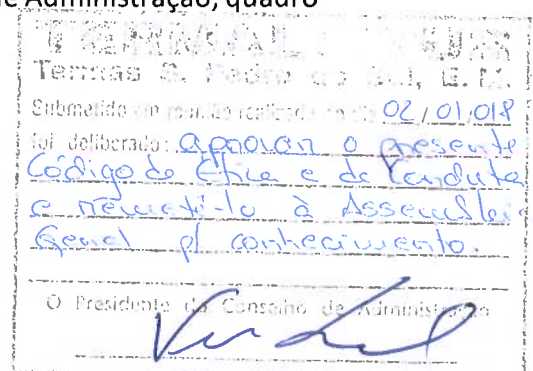 e Administração, quadro
Termas S. Pedro do Sul, E. M.
Submetido em reunião realizada em 02/01/018
foi deliberado: aprovar o presente
Código de Ética e de Conduta
e remetê-lo à Assembleia
Geral p/ conhecimento.
O Presidente do Conselho de Administração